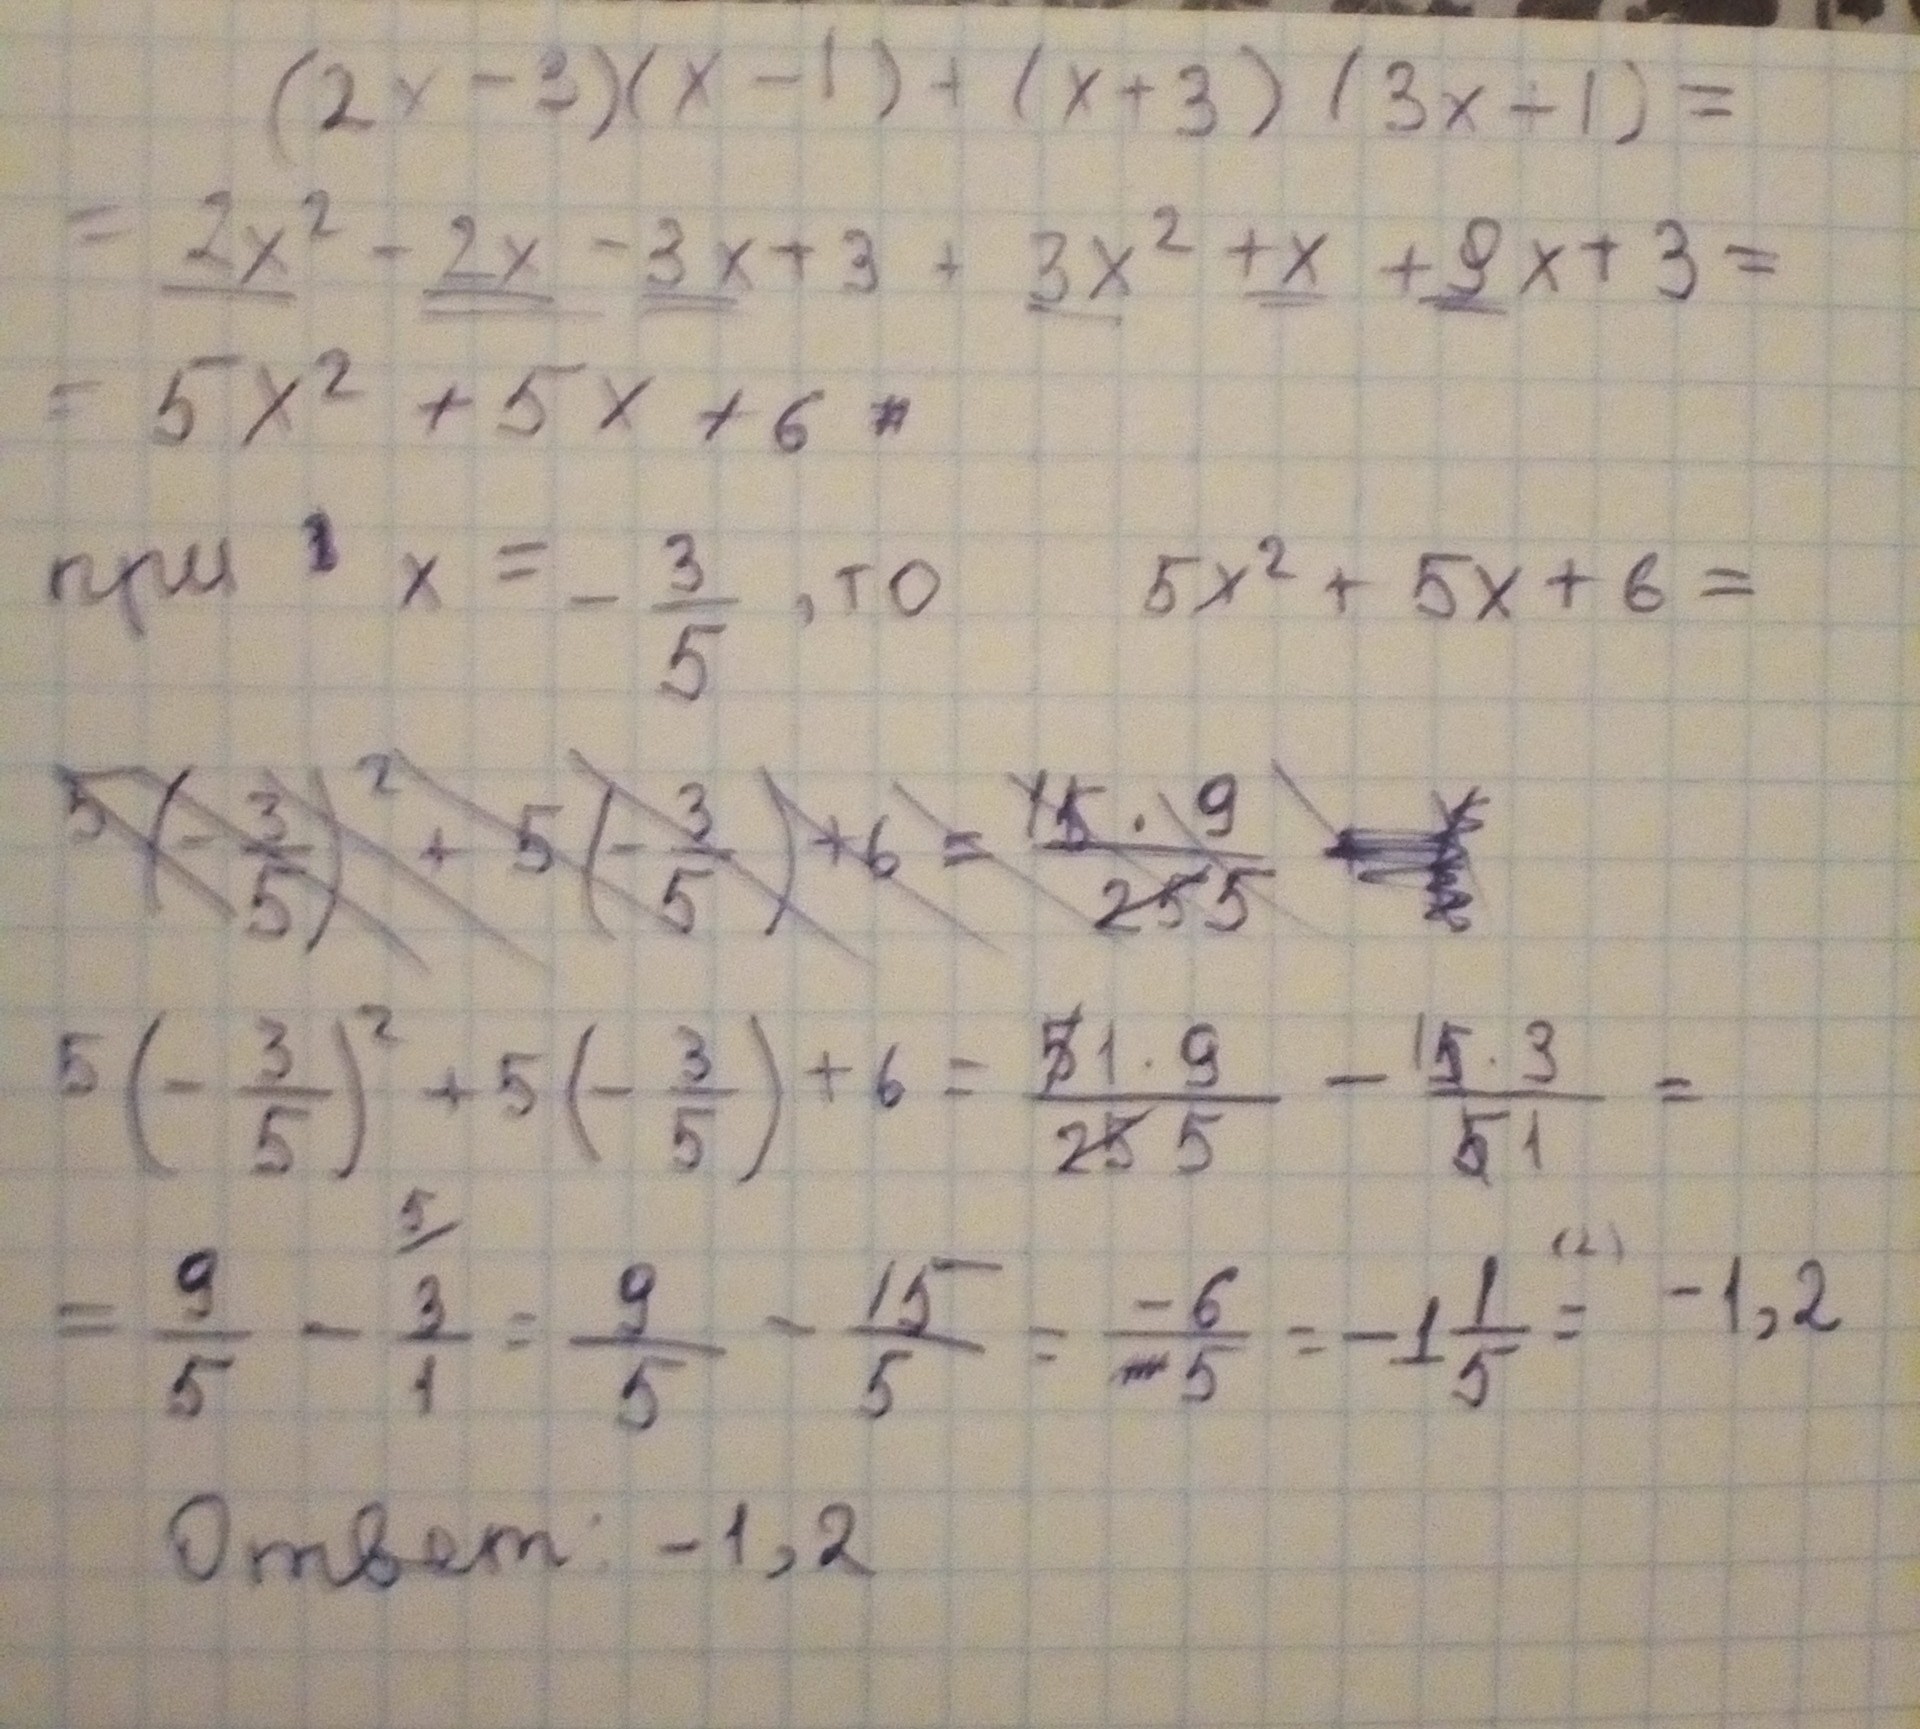 (2x-3)(x-1)+(x+3)(3x+1)=
=2x²-2x-3x+3+3x²+x+9x+3=
=5x²+5x+6
при x=-3/5, то 5x²+5x+6=
5(-3/5)²+5(-3/5)+6=15·9/25 5
5(-3/5)²+5(-3/5)+6=51·9/25 5-15·3/51=
=9/5-3/1 5/=9/5-15/5=-6/5=-1 1/5=(2) -1,2
Ответ: -1,2